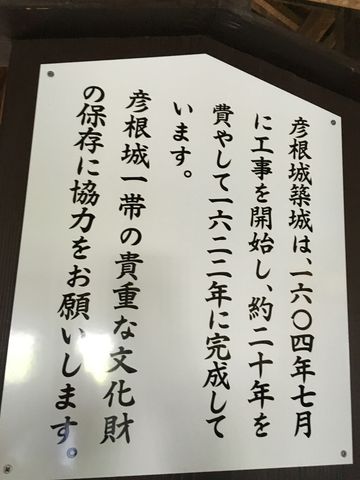 彦根城築城は、一六〇四年七月
に工事を開始し、約二十年を
費やして一六二二年に完成して
います。
彦根城一帯の貴重な文化財
の保存に協力をお願いします。